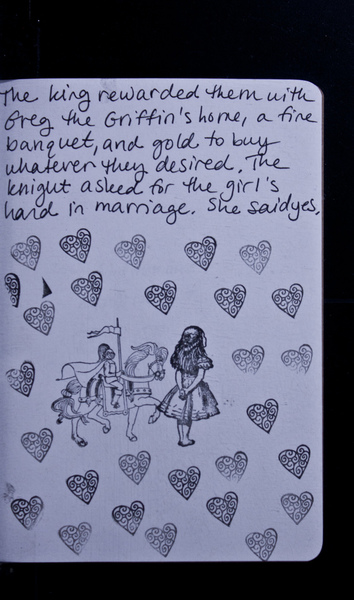 The king rewarded them with
Greg the Griffin's home, a fine
banquet, and gold to buy
whatever they desired. The
knight asked for the girl's
hand in marriage. She said yes.